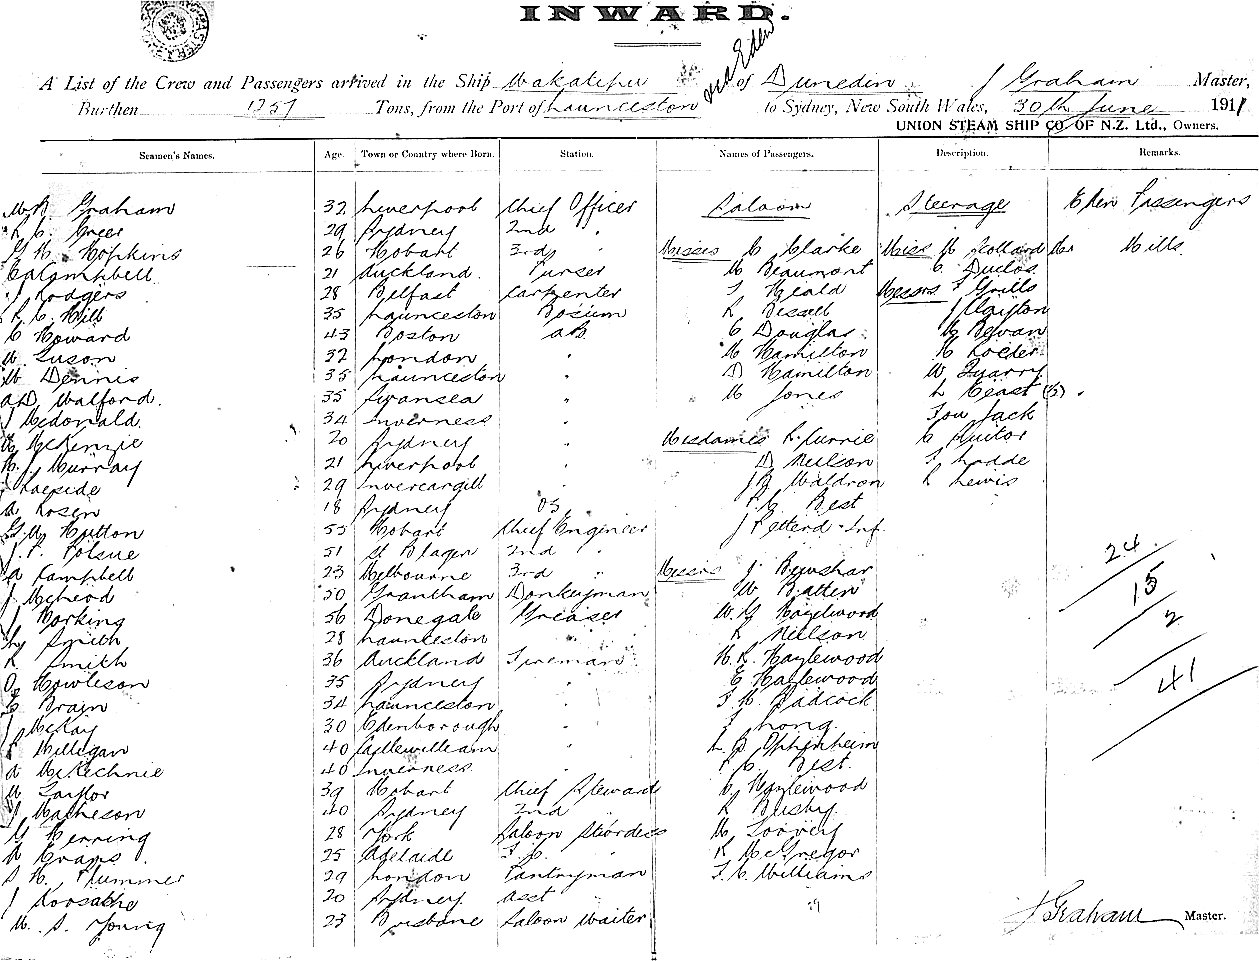 INWARD.
via Eden
A List of the Crew and Passengers arrived in the Ship Wakatipu of Dunedin, J Graham Master,
Burthen 1257 Tons, from the Port of Launceston to Sydney, New South Wales, 30th June 1911
UNION STEAM SHIP CO. OF N.Z. Ltd., Owners,
Seamen's Names. Age. Town or Country where Born. Station. Names of Passengers. Description. Remarks.
Graham 32 Liverpool Chief Officer Saloon Steerage Eden Passengers
Greer 29 Sydney 2nd "
Hopkins 26 Hobart 3rd " Misses C Clarke Miss Stollard Mr Mills
Campbell 21 Auckland Purser M Beaumont C Duclos
J Rodgers 28 Belfast Carpenter Heald Messrs Grills
R C Hill 35 Launceston Bosium R Bissett J Clayton
C Howard 43 Boston AB C Douglas Bewan
W Luson 32 London " M Hamilton Loeder
W Dennis 35 Launceston " D Hamilton W Quarry
A D Walford. 35 Swansea " M Jones L Keast (3)
J McDonald. 34 Inverness " Fou Jack
McKenzie 20 Sydney " Mesdames R Currie C Suitor
H J Murray 21 Liverpool " D Neilson Ladde
Raeside 29 Invercargill " Waldron R Lewis
A Rosen 18 Sydney OS Best
G W Hutton 55 Hobart Chief Engineer J Petterd & Inf
J. P. Polsue 51 St Blazen 2nd "
A Campbell 23 Melbourne 3rd " Messrs J Bewshar
J McLeod 50 Grantham Donkeyman W Batten
J Hocking 56 Donegale Greaser W. G Hazelwood
Hy Smith 28 Launceston R Neilson
R Smith 36 Auckland Fireman H. R. Hazlewood
Howieson 35 Sydney " E Hazlewood
E Brain 34 Launceston " Badcock
J McKay 30 Edenborough " Long
Milligan 40 " L B Ophenheim
A McKechnie 40 Inverness " Best.
W Taylor 39 Hobart Chief Steward Hazlewood
Matheson 40 Sydney 2nd " R Busby
G Herring 28 York Saloon Stordess
A Evans. 25 Adelaide F. C. R McGregor
S H. Plummer 29 London Pantryman F. C Williams
J 20 Sydney Asst
W. S. Young 23 Brisbane Saloon Waiter
24
15
2
41
J Graham Master.